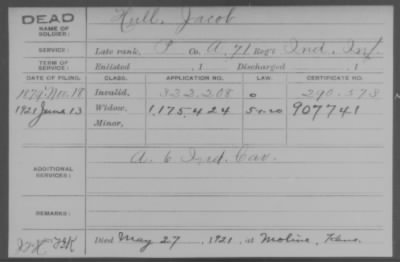 DEAD
NAME OF SOLDIER: Hull, Jacob
SERVICE: Late rank, P Co. A, 71 Reg't Ind. Inf.
TERM OF SERVICE: Enlisted , 1 Discharged , 1
DATE OF FILING. CLASS. APPLICATION NO. LAW. CERTIFICATE NO.
1879 Nov. 18 Invalid, 322.208 290.573
1921 June 13 Widow, 1,175,424 907741
Minor,
ADDITIONAL SERVICES: A. 6 Ind. Cav.
REMARKS:
Died May 27, 1921, at Moline, Kans.